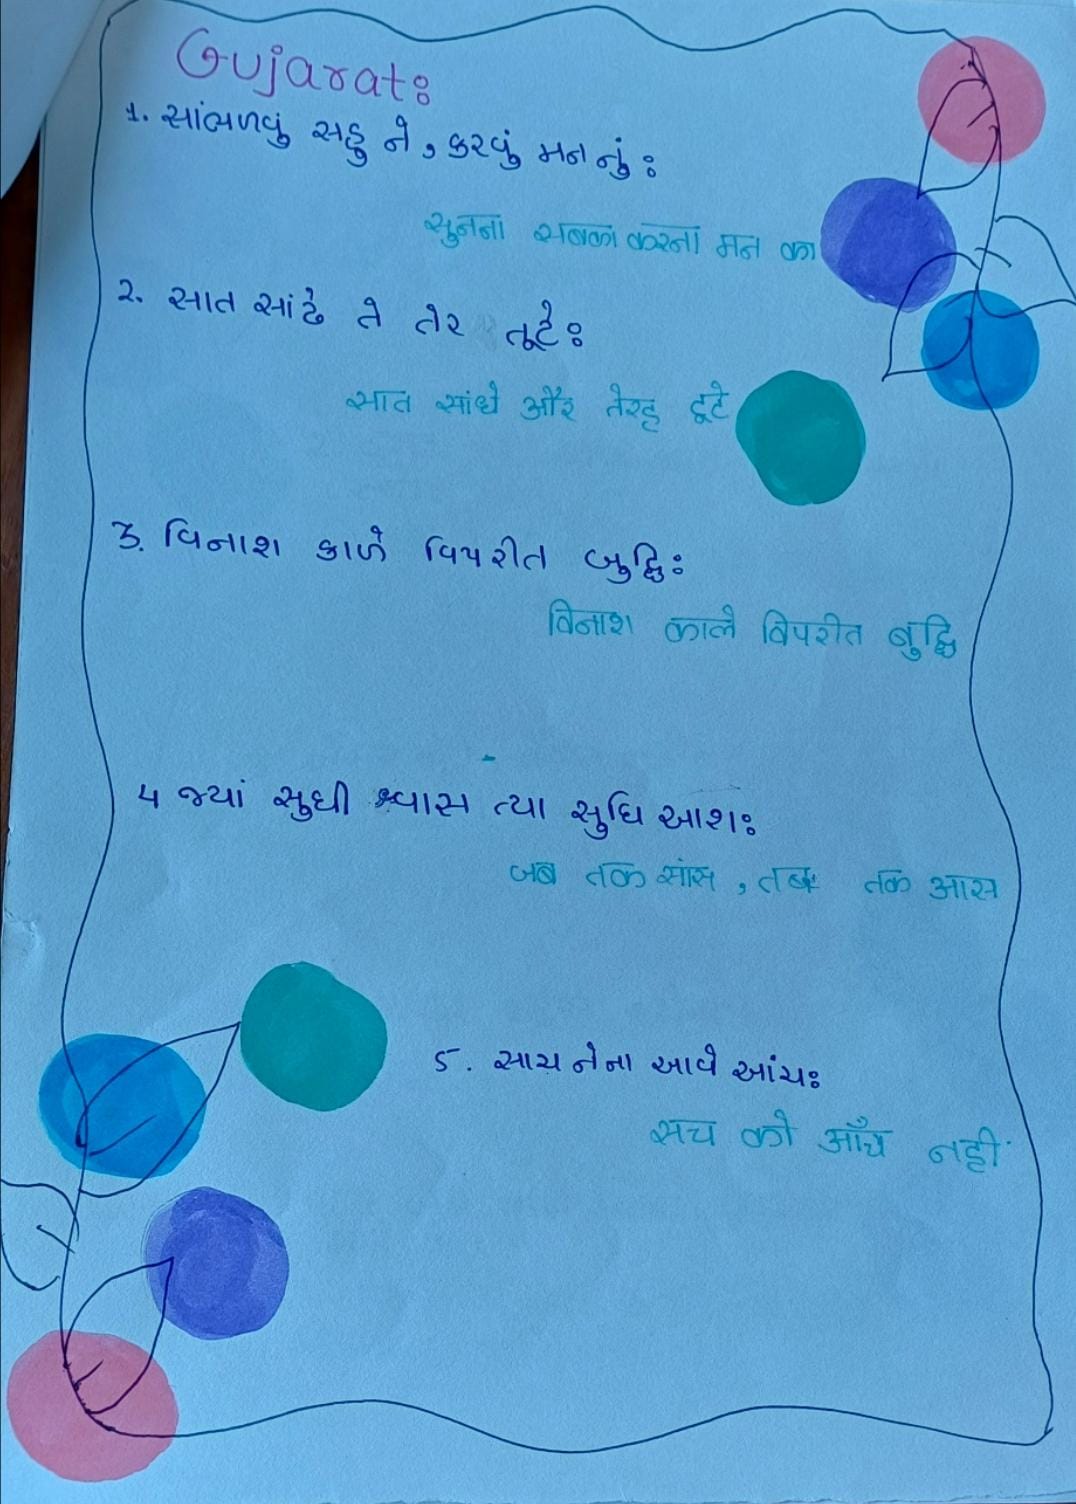 Gujarat:
1. સાંભળવું સહુ ને, કરવું મન નું:
सुनना सबका करना मन का
૨. સાત સાંઢે તે તેર તૂટે:
सात सांधे और तेरह टूटे
3. વિનાશ કાળે વિપરીત બુદ્ધિ:
विनाश काले विपरीत बुद्धि
4 જ્યાં સુધી શ્વાસ ત્યા સુધિ આશ:
जब तक सांस, तब तक आस
5. સાચ નેના આવે આંચ:
सच को आँच नहीं